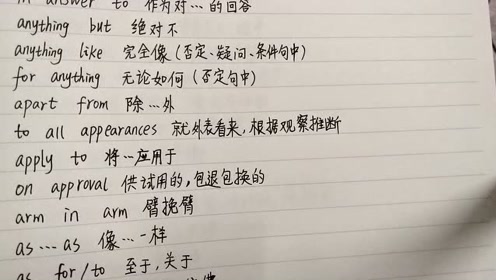 in answer to 作为对…的回答
anything but 绝对不
anything like 完全像(否定、疑问、条件句中)
for anything 无论如何(否定句中)
apart from 除…外
to all appearances 就外表看来,根据观察推断
apply to 将…应用于
on approval 供试用的,包退包换的
arm in arm 臂挽臂
as…as 像…一样
as for/to 至于,关于